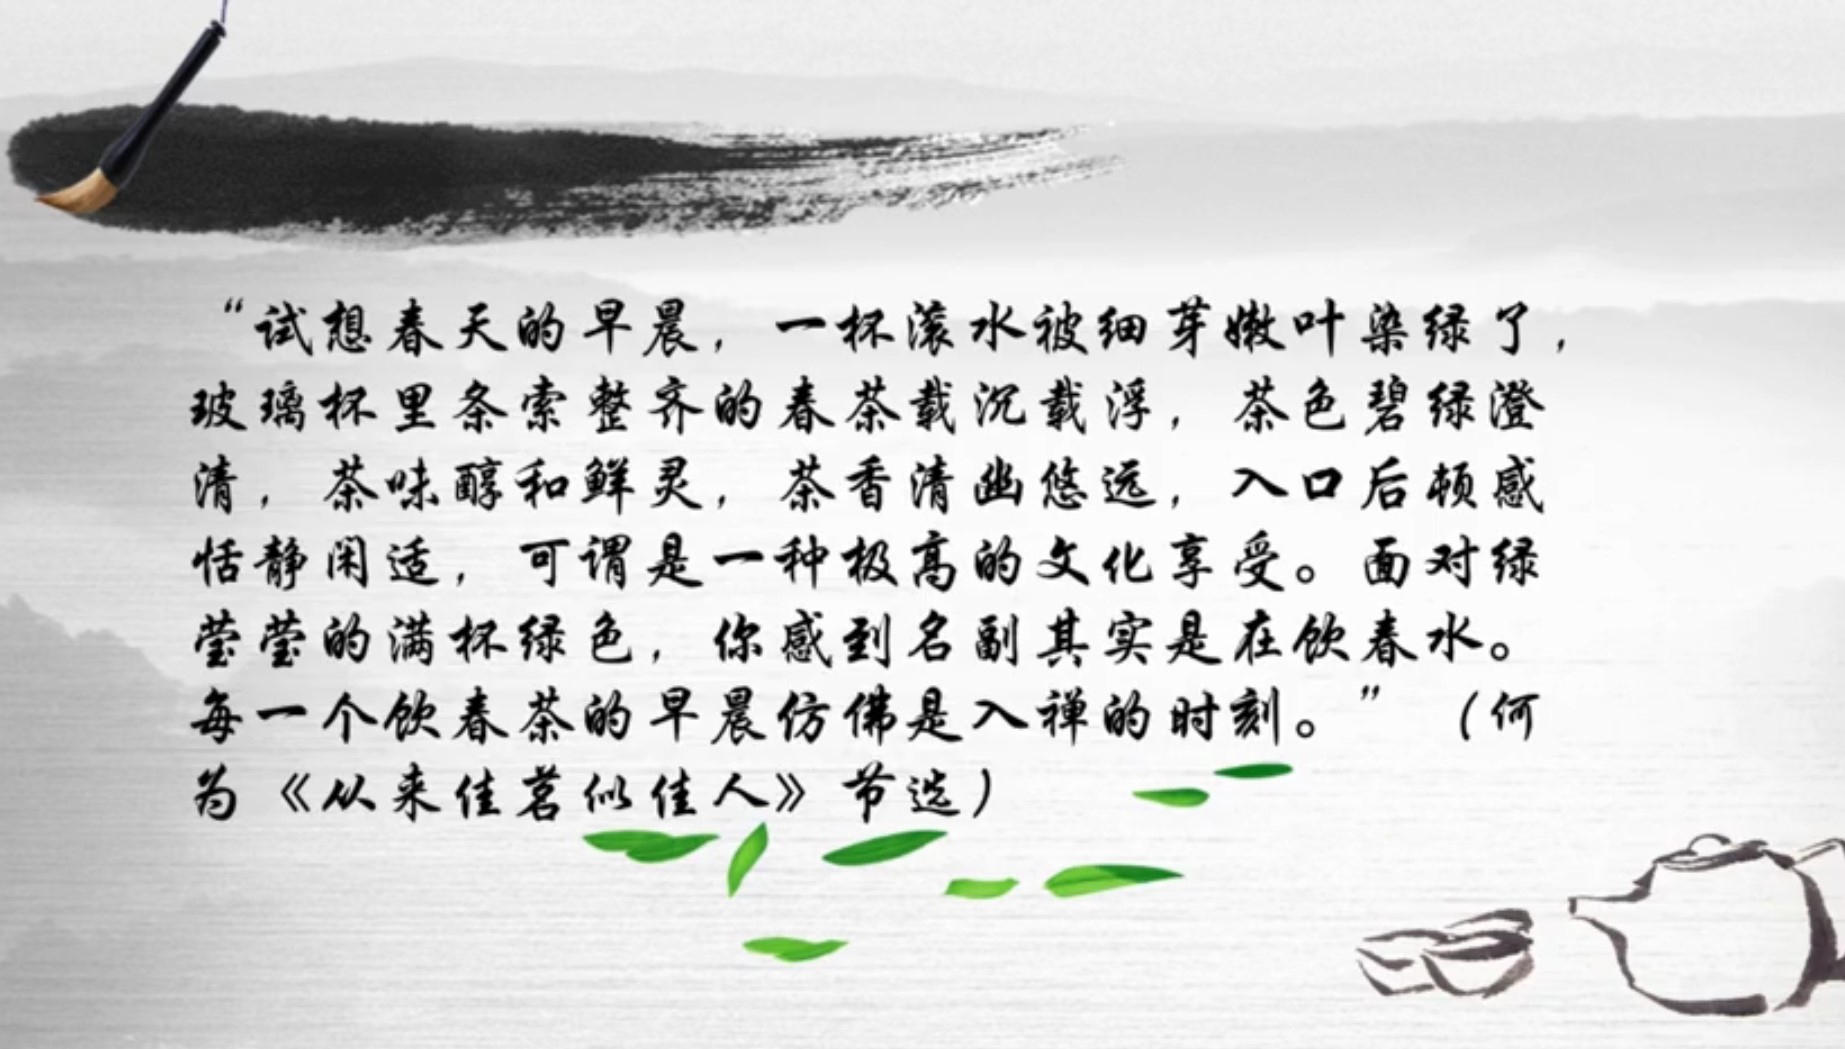 “试想春天的早晨，一杯滚水被细芽嫩叶染绿了，
玻璃杯里条索整齐的春茶载沉载浮，茶色碧绿澄
清，茶味醇和鲜灵，茶香清幽悠远，入口后顿感
恬静闲适，可谓是一种极高的文化享受。面对绿
莹莹的满杯绿色，你感到名副其实是在饮春水。
每一个饮春茶的早晨仿佛是入禅的时刻。”（何
为《从来佳茗似佳人》节选）